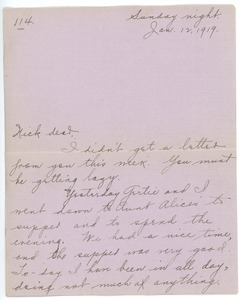 114
Sunday night.
Jan. 12, 1919.
Dick dear,
I didn't get a letter
from you this week. You must
be getting lazy.
Yesterday Gertie and I
went down to Aunt Alice's to
supper and to spend the
evening. We had a nice time,
and the supper was very good.
To-day I have been in all day,
doing not much of anything.